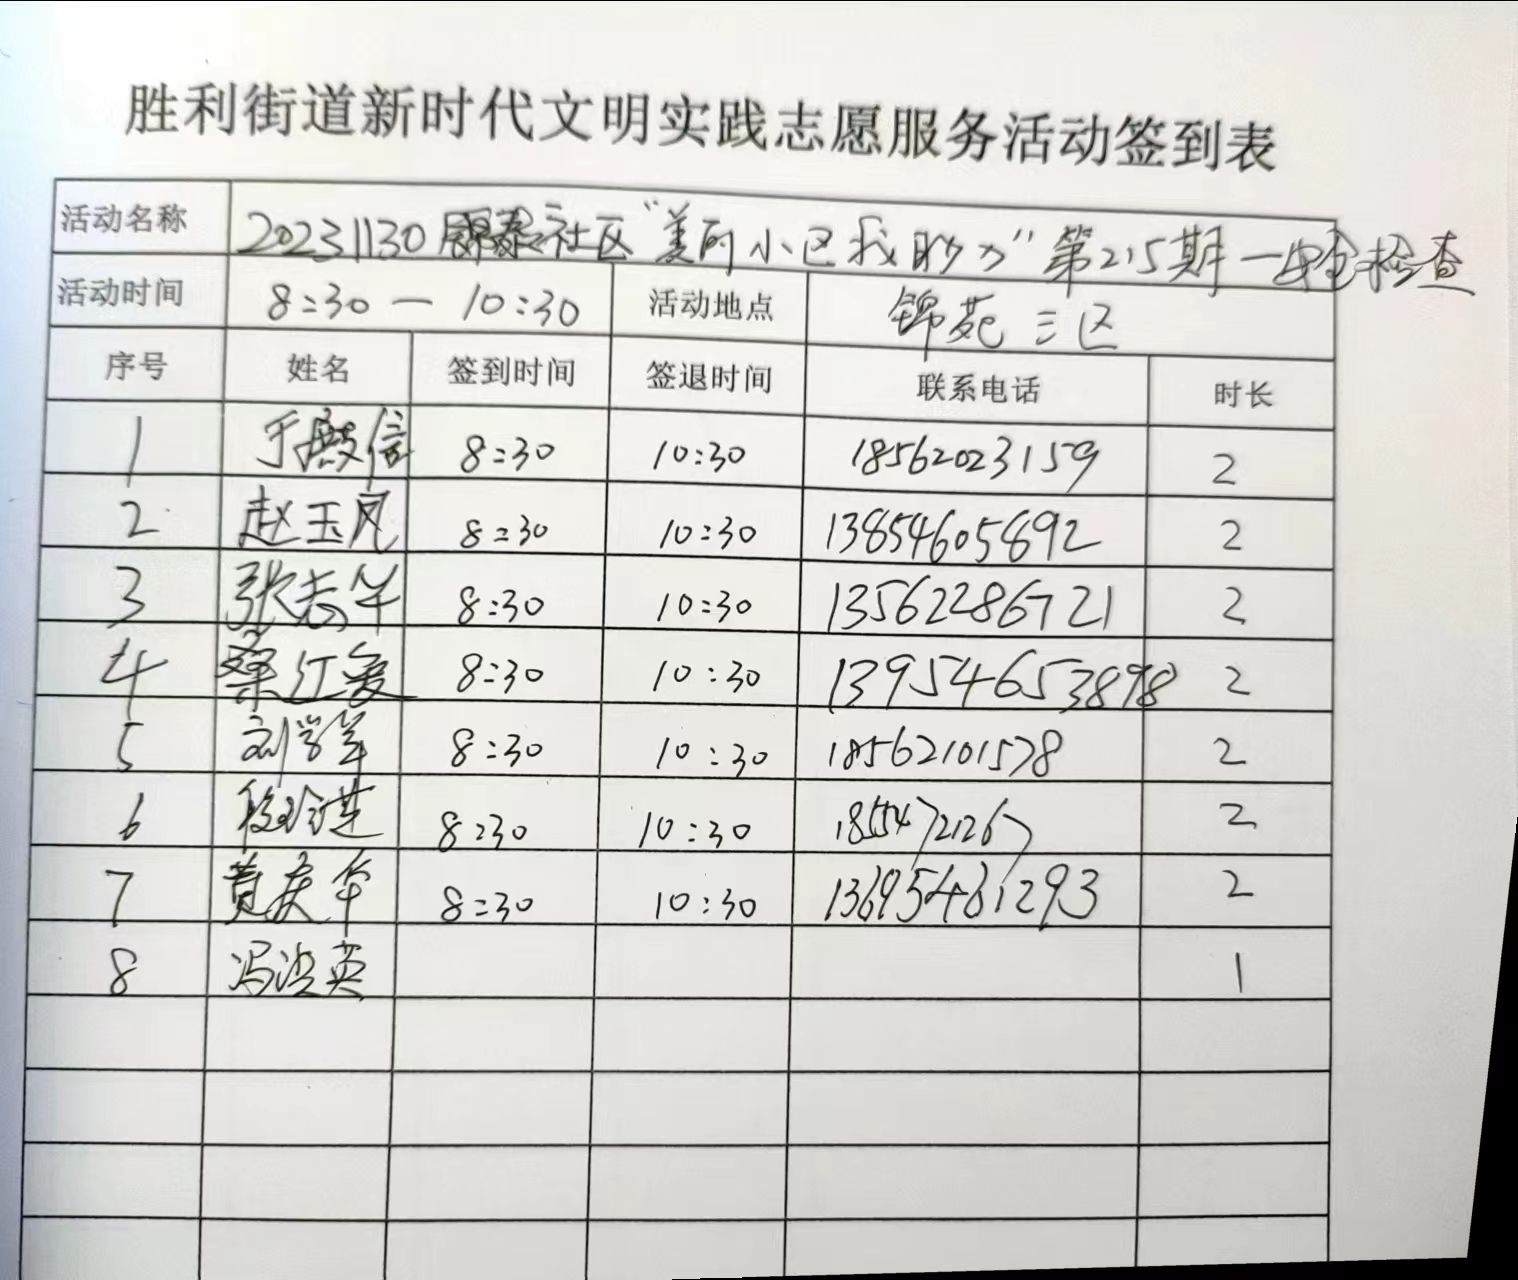 胜利街道新时代文明实践志愿服务活动签到表
活动名称 20231130 社区“美丽小区我助力”第215期—安全检查
活动时间 8:30 — 10:30 活动地点 锦苑三区
序号 姓名 签到时间 签退时间 联系电话 时长
1 于殿信 8:30 10:30 18562023159 2
2 赵玉凤 8:30 10:30 13854605692 2
3 张志华 8:30 10:30 13562286721 2
4 桑红爱 8:30 10:30 139546653898 2
5 刘学军 8:30 10:30 18562101578 2
6 段珍莲 8:30 10:30 18554721267 2
7 黄庆华 8:30 10:30 13695461293 2
8 冯洪英 1